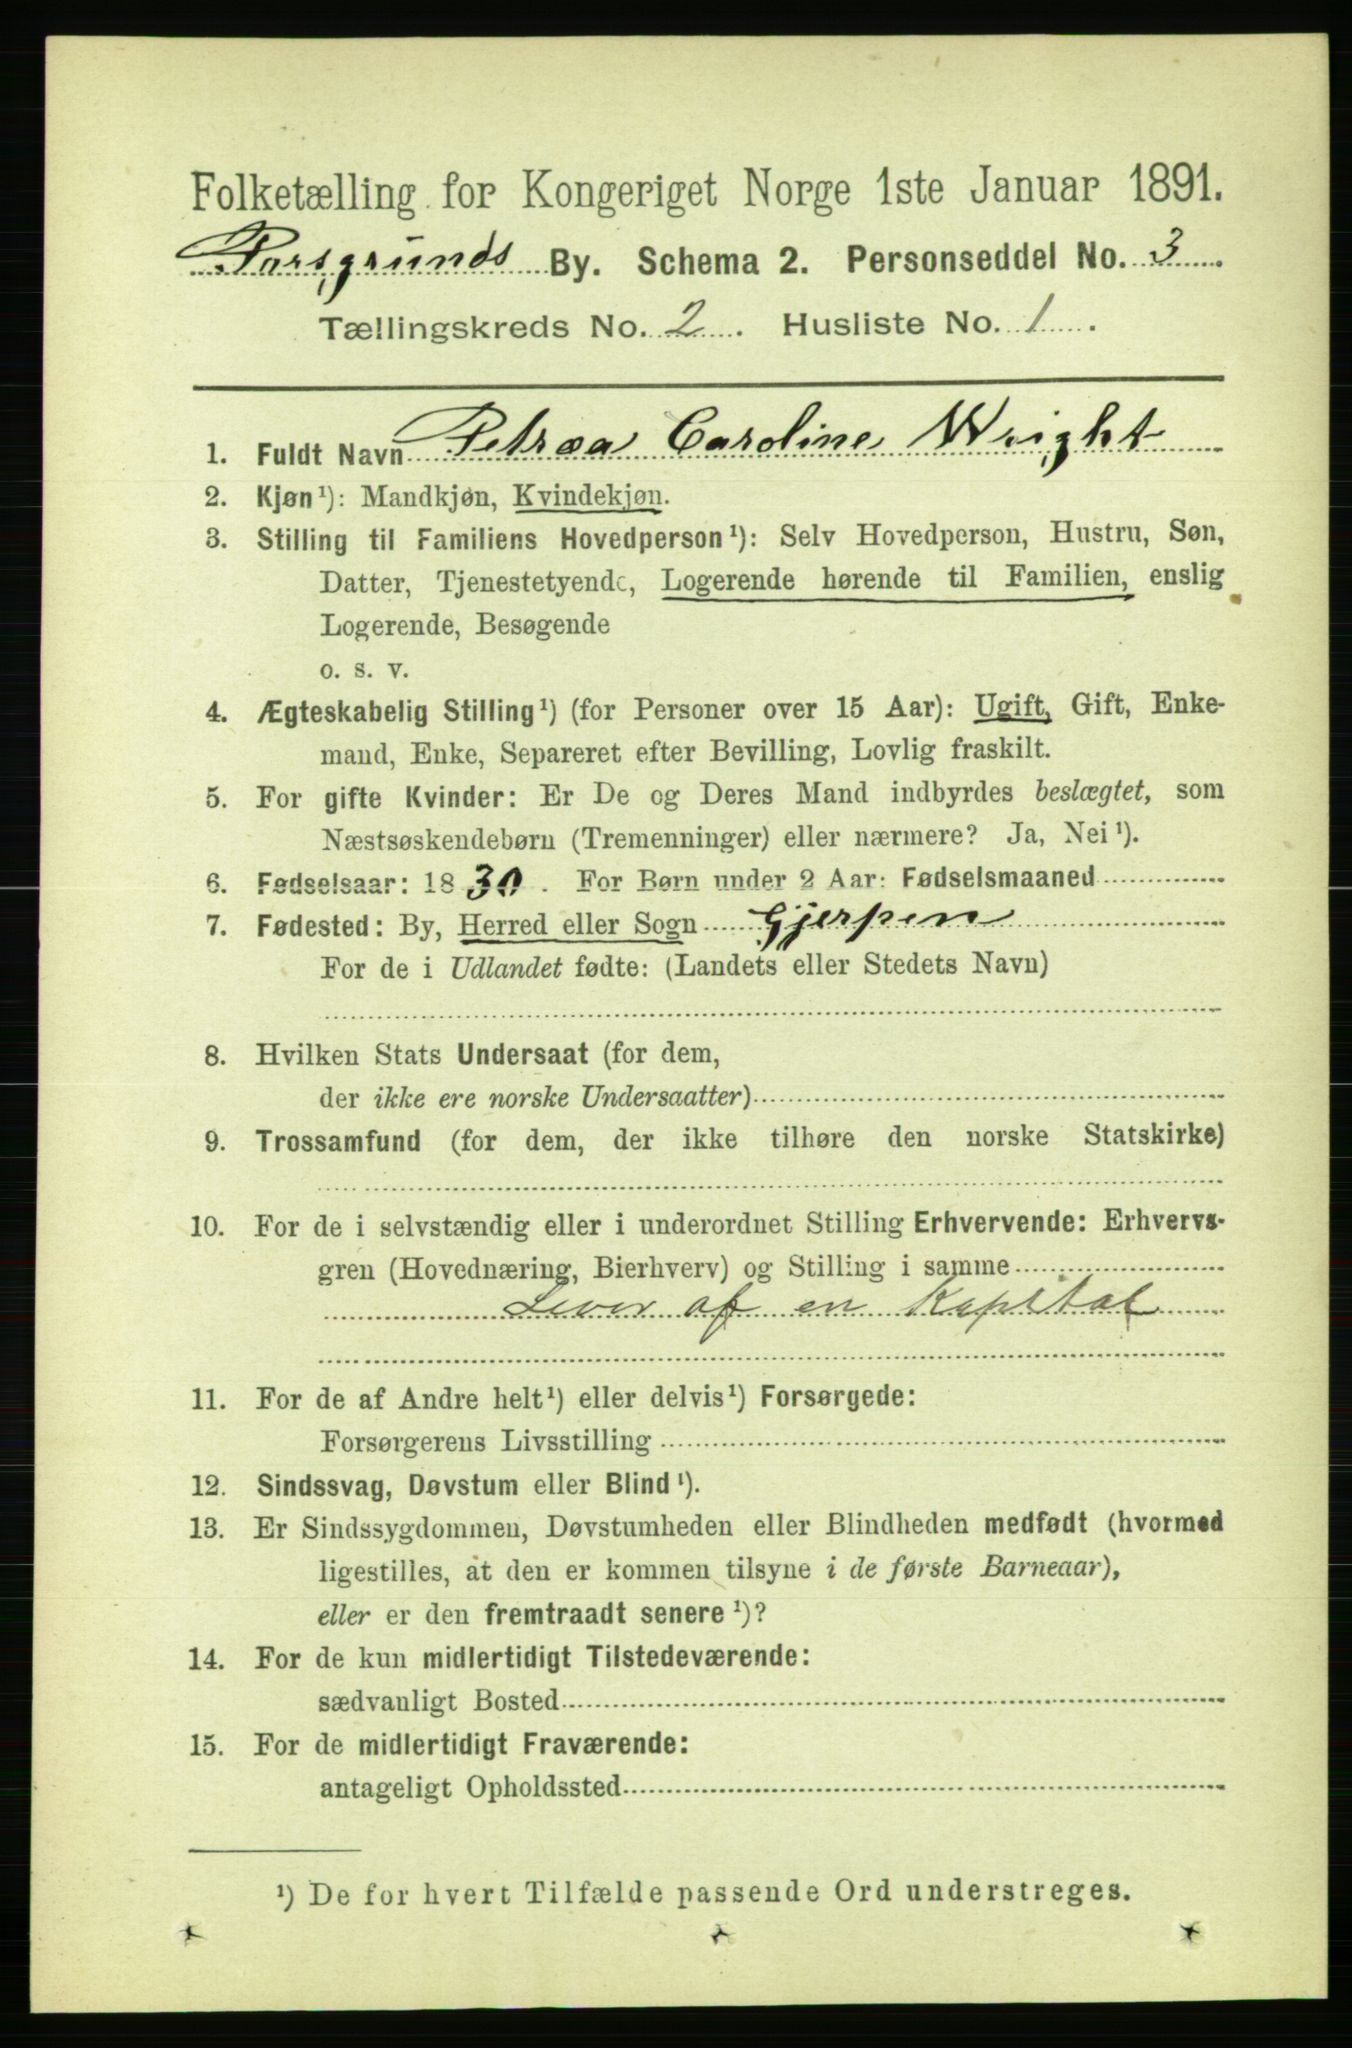 Folketælling for Kongeriget Norge 1ste Januar 1891.
Porsgrunds By. Schema 2. Personseddel No. 3
Tællingskreds No. 2. Husliste No. 1.
1. Fuldt Navn Petræa Caroline Wright
2. Kjøn¹): Mandkjøn, Kvindekjøn.
3. Stilling til Familiens Hovedperson¹): Selv Hovedperson, Hustru, Søn,
Datter, Tjenestetyende, Logerende hørende til Familien, enslig
Logerende, Besøgende
o. s. v.
4. Ægteskabelig Stilling¹) (for Personer over 15 Aar): Ugift, Gift, Enke-
mand, Enke, Separeret efter Bevilling, Lovlig fraskilt.
5. For gifte Kvinder: Er De og Deres Mand indbyrdes beslægtet, som
Næstsøskendebørn (Tremenninger) eller nærmere? Ja, Nei¹).
6. Fødselsaar: 1830. For Børn under 2 Aar: Fødselsmaaned
7. Fødested: By, Herred eller Sogn Gjerpen
For de i Udlandet fødte: (Landets eller Stedets Navn)
8. Hvilken Stats Undersaat (for dem,
der ikke ere norske Undersaatter)
9. Trossamfund (for dem, der ikke tilhøre den norske Statskirke)
10. For de i selvstændig eller i underordnet Stilling Erhvervende: Erhvervs-
gren (Hovednæring, Bierhverv) og Stilling i samme
Lever af en Kapital
11. For de af Andre helt¹) eller delvis¹) Forsørgede:
Forsørgerens Livsstilling
12. Sindssvag, Døvstum eller Blind¹).
13. Er Sindssygdommen, Døvstumheden eller Blindheden medfødt (hvormed
ligestilles, at den er kommen tilsyne i de første Barneaar),
eller er den fremtraadt senere¹)?
14. For de kun midlertidigt Tilstedeværende:
sædvanligt Bosted
15. For de midlertidigt Fraværende:
antageligt Opholdssted
¹) De for hvert Tilfælde passende Ord understreges.